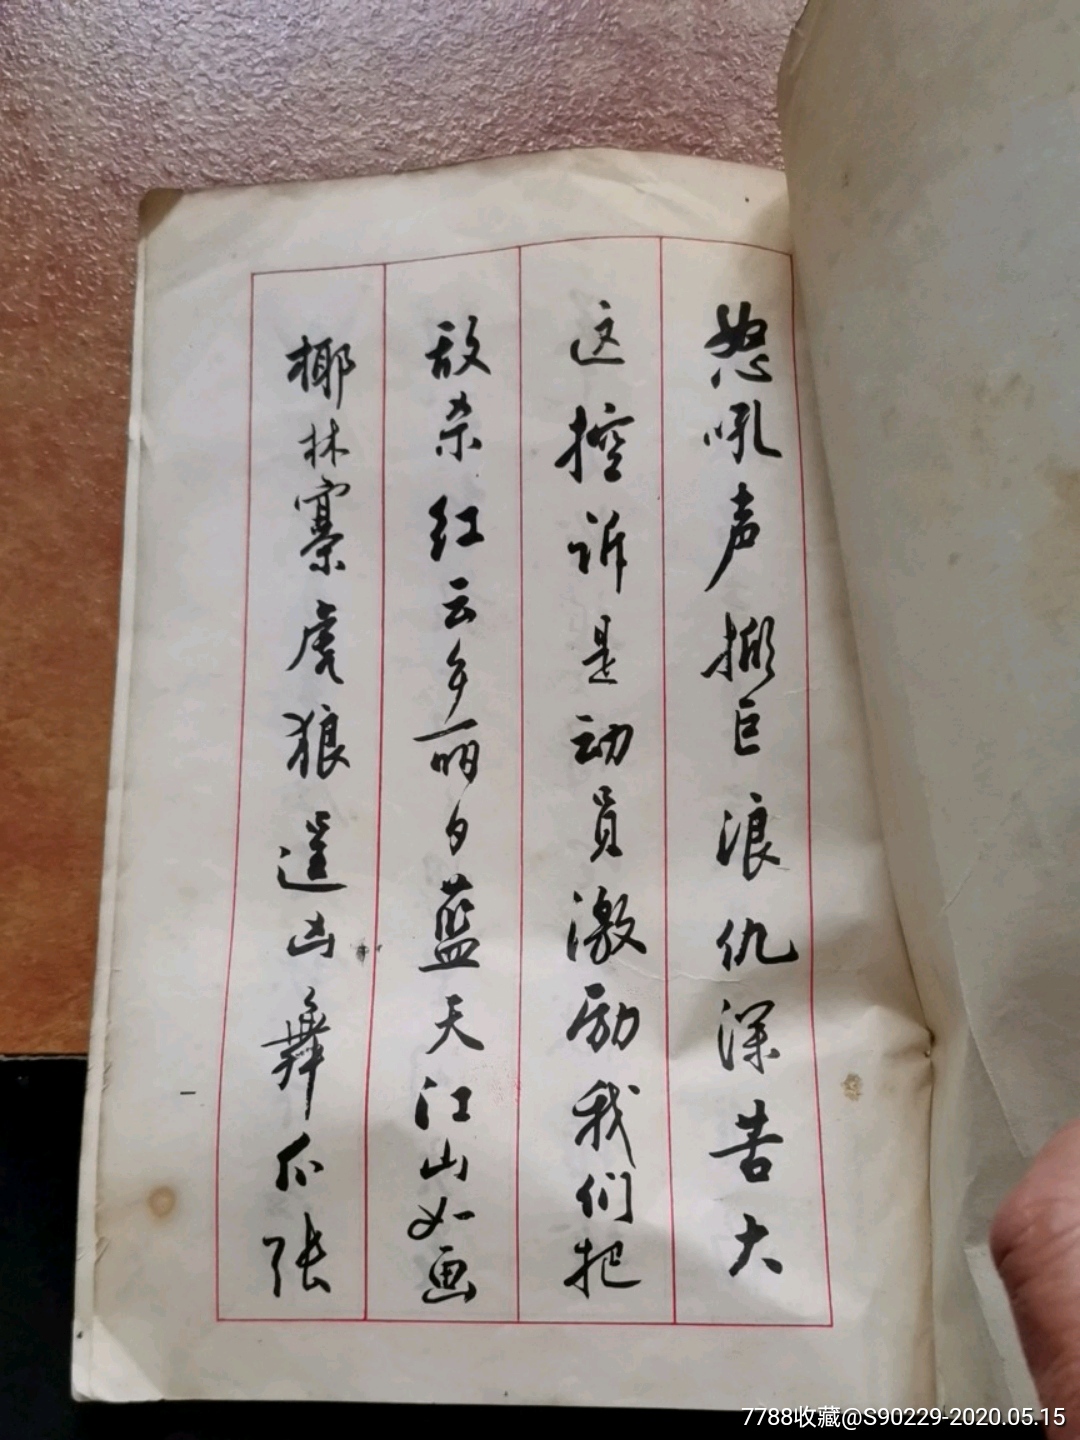 怒吼声掀巨浪仇深苦大
这控诉是动员激励我们把
敌杀红云乡丽日蓝天江山如画
椰林寨虎狼逞凶舞爪张
7788收藏@S90229-2020.05.15